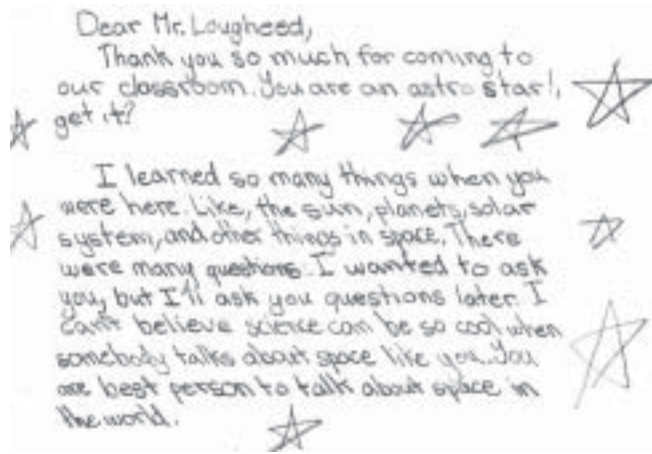 Dear Mr. Lougheed,
Thank you so much for coming to
our classroom. You are an astro star!,
get it?
I learned so many things when you
were here. Like, the sun, planets, solar
system, and other things in space. There
were many questions I wanted to ask
you, but I'll ask you questions later. I
can't believe science can be so cool when
somebody talks about space like you. You
are best person to talk about space in
the world.